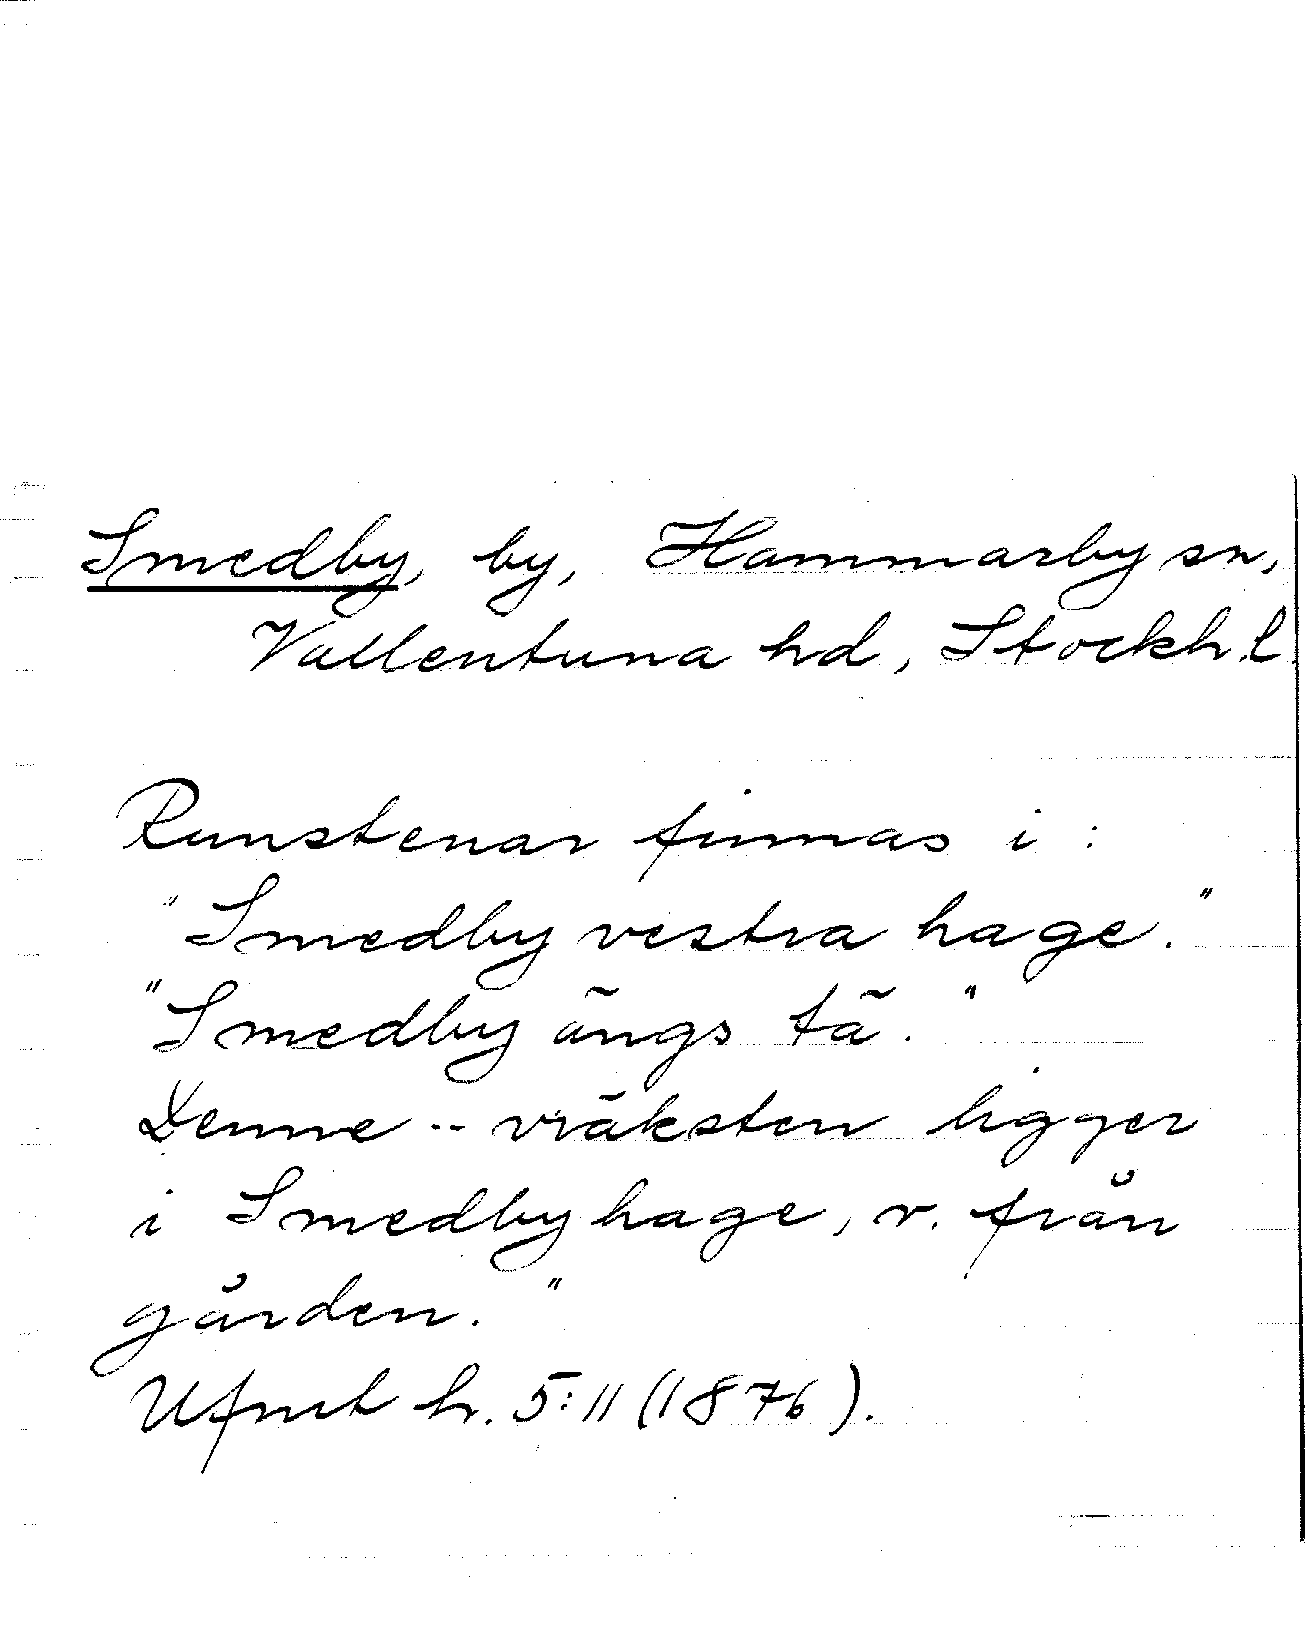 Smedby, by, Hammarby sn,
Vallentuna hd, Stockh.l.
Runstenar finnas i:
"Smedby vestra hage."
"Smedby ängs tä."
Denne -- vräksten ligger
i Smedby hage, v. från
gården."
Ufmt h. 5:11 (1876).